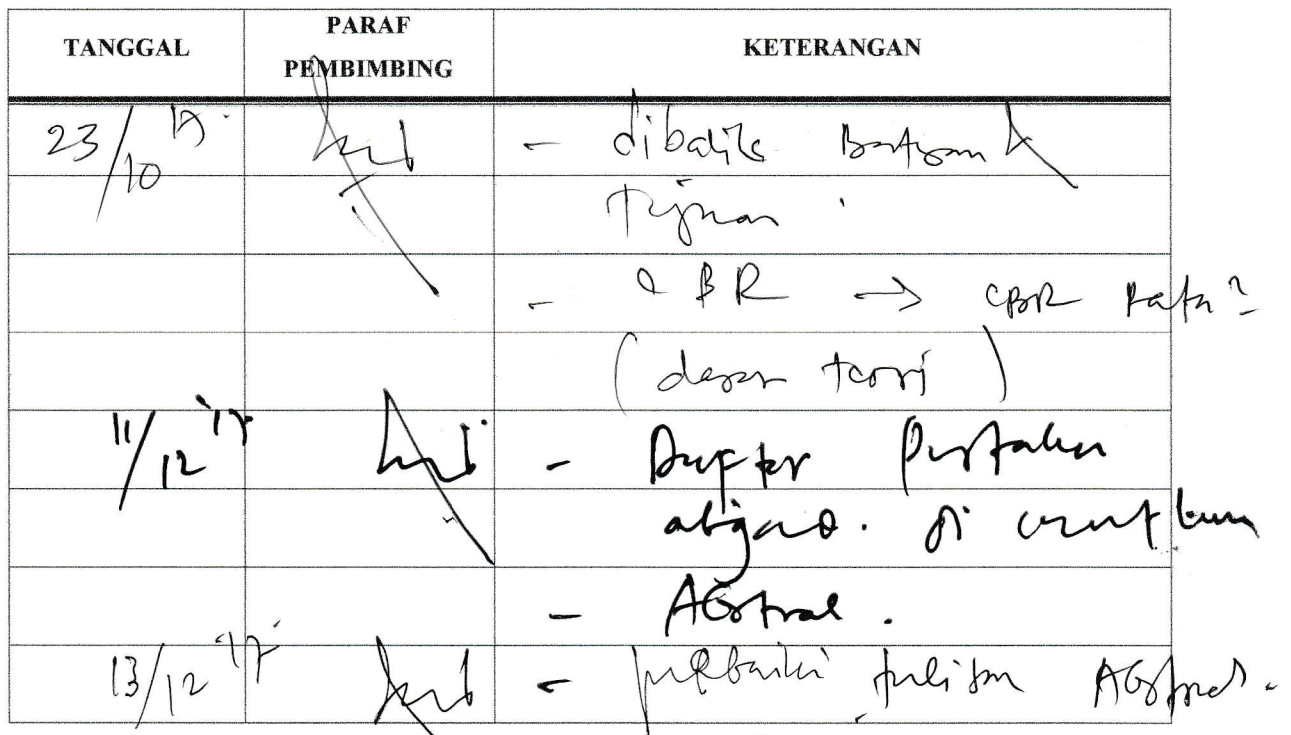 TANGGAL
PARAF
PEMBIMBING
KETERANGAN
23/10 '17
- dibalik Batasan &
Tujuan
- CBR → CBR rata²
(dasar teori)
11/12 '17
- Daftar Pustaka
abjad. di urutkan
- Abstrak.
13/12 '17
- perbaiki tulisan Abstrak.